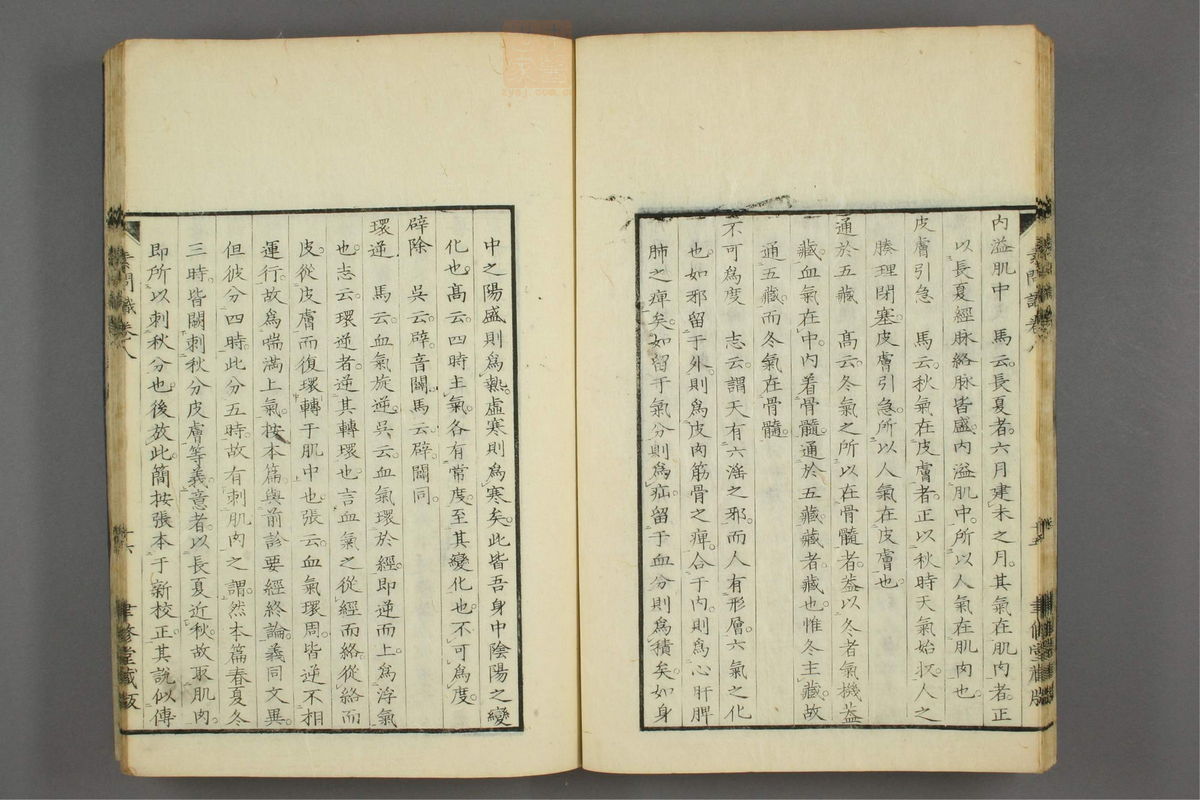 內溢肌中　馬云。長夏者。六月建未之月。其氣在肌肉者。正
以長夏經脉絡脉皆盛。內溢肌中。所以人氣在肌肉也。
皮膚引急　馬云。秋氣在皮膚者。正以秋時天氣始収。人之
腠理閉塞。皮膚引急。所以人氣在皮膚也。
通於五藏　高云。冬氣之所以在骨髓者。蓋以冬者氣機蓋
藏。血氣在中。內着骨髓。通於五藏。藏者藏也。惟冬主藏。故
通五藏。而冬氣在骨髓。
不可爲度　志云。謂天有六滛之邪。而人有形層。六氣之化
也。如邪留于外。則爲皮肉筋骨之痺。合于內。則爲心肝脾
肺之痺矣。如留于氣分。則爲疝。留于血分。則爲積矣。如身
中之陽盛。則爲熱。虛寒則爲寒矣。此皆吾身中陰陽之變
化也。高云。四時主氣。各有常度。至其變化也。不可爲度
辟除　吳云。辟音闢。馬云。辟闢同。
環逆　馬云。血氣旋逆。吳云。血氣環於經。卽逆而上爲浮氣
也。志云。環逆者。逆其轉環也。言血氣之從經而絡。從絡而
皮。從皮膚而復環轉于肌中也。張云。血氣環周。皆逆不相
運行。故爲喘滿上氣。按本篇與前診要經終論。義同文異。
但彼分四時。此分五時。故有刺肌肉之謂。然本篇春夏冬
三時。皆闕刺秋分皮膚等義。意者。以長夏近秋。故取肌肉。
卽所以刺秋分也。後放此。簡按張本于新校正。其說似傳
素問識卷八
十六
聿修堂藏版
素問識卷八
聿修堂藏版